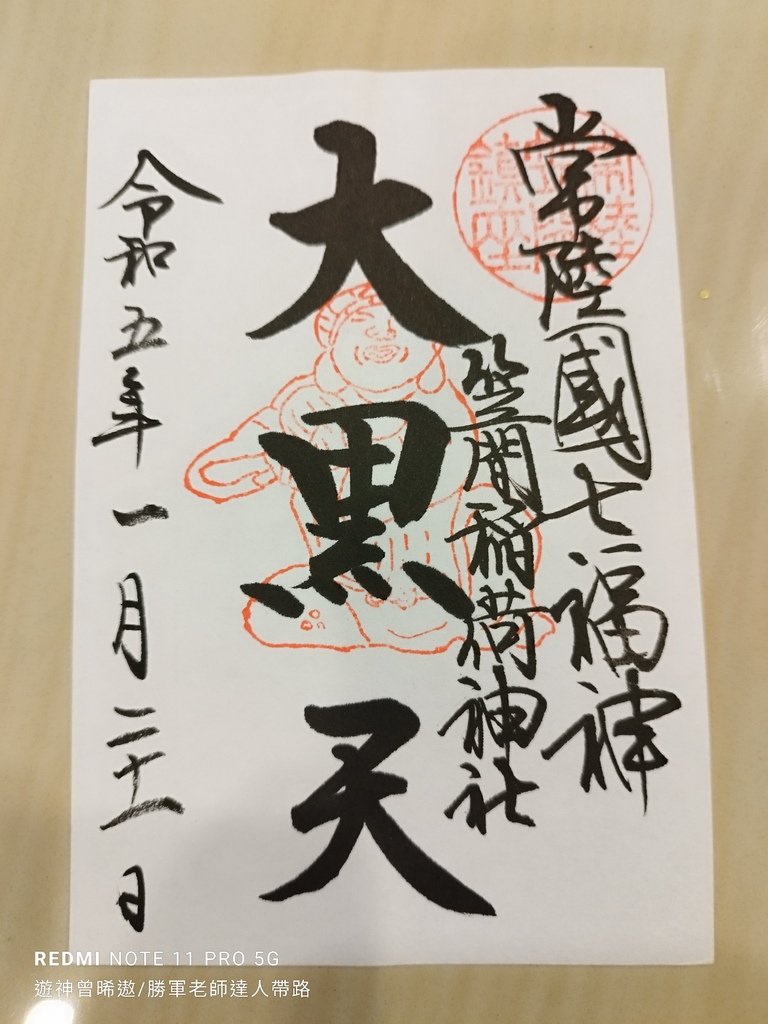 常陸國七福神
笠間稲荷神社
大黒天
令和五年一月二十一日
鎮座
REDMI NOTE 11 PRO 5G
遊神曾晞遨/勝軍老師達人帶路